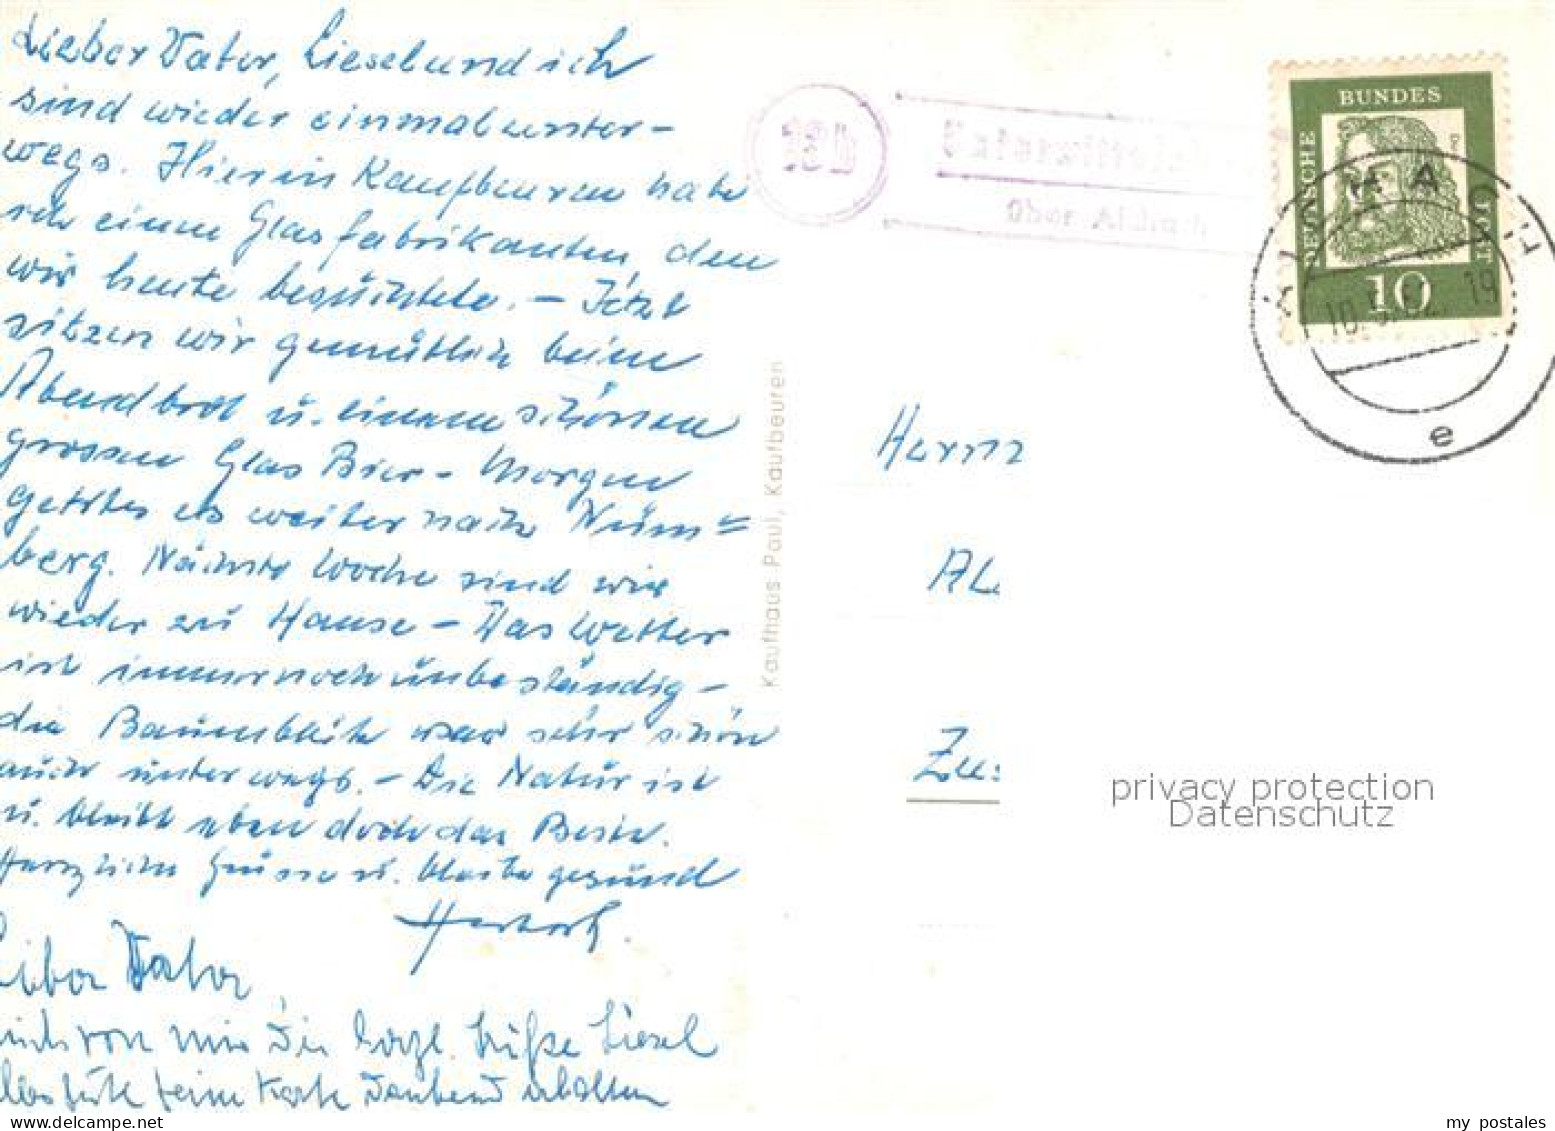 Lieber Vater, Liesel und ich
sind wieder einmal unter-
wegs. Hier in Kaufbeuren habe
ich einen Glasfabrikanten, den
wir heute besuchte. - Jetzt
sitzen wir gemütlich beim
Abendbrot u. einem schönen
grossen Glas Bier - Morgen
geht es weiter nach Nürn=
berg. Nächste Woche sind wir
wieder zu Hause - Das Wetter
ist immer noch unbeständig -
die Baumblüte war sehr schön
auch unterwegs. - Die Natur ist
u. bleibt eben doch das Beste.
Herzliche Grüsse u. bleibe gesund
Herbert.
Lieber Vater
auch von mir Dir herzl. Grüße Liesel
Karte dankend erhalten
Kaufhaus Paul, Kaufbeuren
22b
über Alzenach
DEUTSCHE
BUNDES
POST
10
19
e
Herrn
Al
Zu:
privacy protection
Datenschutz
my postales